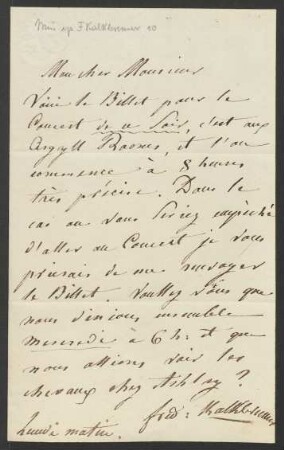 Mon cher Monsieur
Voici le Billet pour le
Concert de ce Soir, c'est aux
Argyll Rooms, et l'on
commence à 8 heures
très précise. Dans le
cas ou vous seriez empêché
d'aller au Concert je vous
prierais de me renvoyer
le Billet. Voullez Vous que
nous dinions ensemble
mercredi à 6 h: et que
nous allions voir les
chevaux chez Ashley?
fred: Kalkbrenner
Lundi matin.